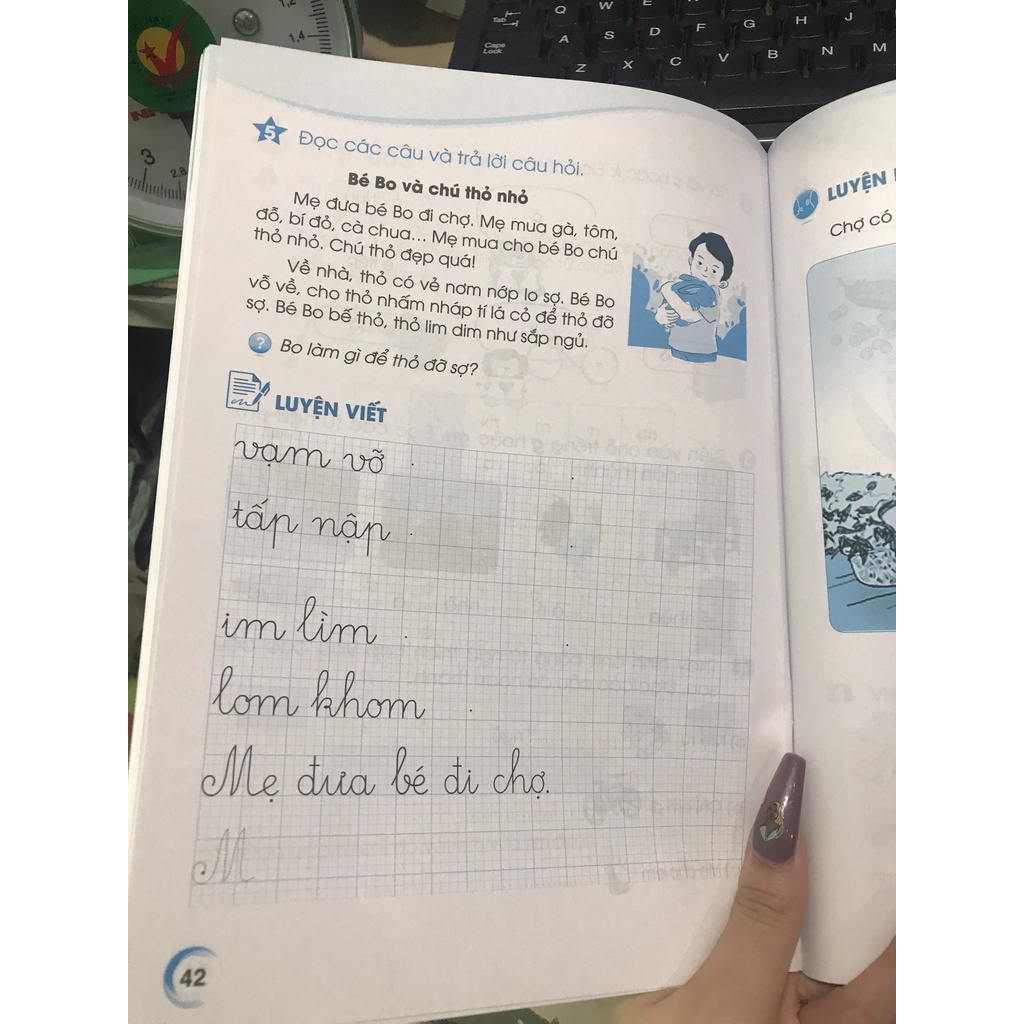 Tab
Q W E
Caps Lock
A S D F G H J
Z X C V B N M
1,2
1,4
3
2,8
5 Đọc các câu và trả lời câu hỏi.
Bé Bo và chú thỏ nhỏ
Mẹ đưa bé Bo đi chợ. Mẹ mua gà, tôm,
đỗ, bí đỏ, cà chua... Mẹ mua cho bé Bo chú
thỏ nhỏ. Chú thỏ đẹp quá!
Về nhà, thỏ có vẻ nơm nớp lo sợ. Bé Bo
vỗ về, cho thỏ nhấm nháp tí lá cỏ để thỏ đỡ
sợ. Bé Bo bế thỏ, thỏ lim dim như sắp ngủ.
? Bo làm gì để thỏ đỡ sợ?
LUYỆN VIẾT
vạm vỡ
tấp nập
im lìm
lom khom
Mẹ đưa bé đi chợ.
M
42
LUYỆN
Chợ có